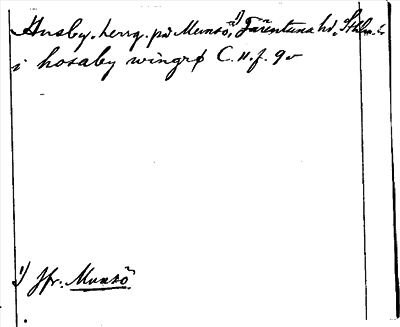 Husby, herrg. på Munsö,¹) Färentuna hd, Sthlms l.
i hosaby wingrø C. H. f. 9v
¹) Jfr. Munsö